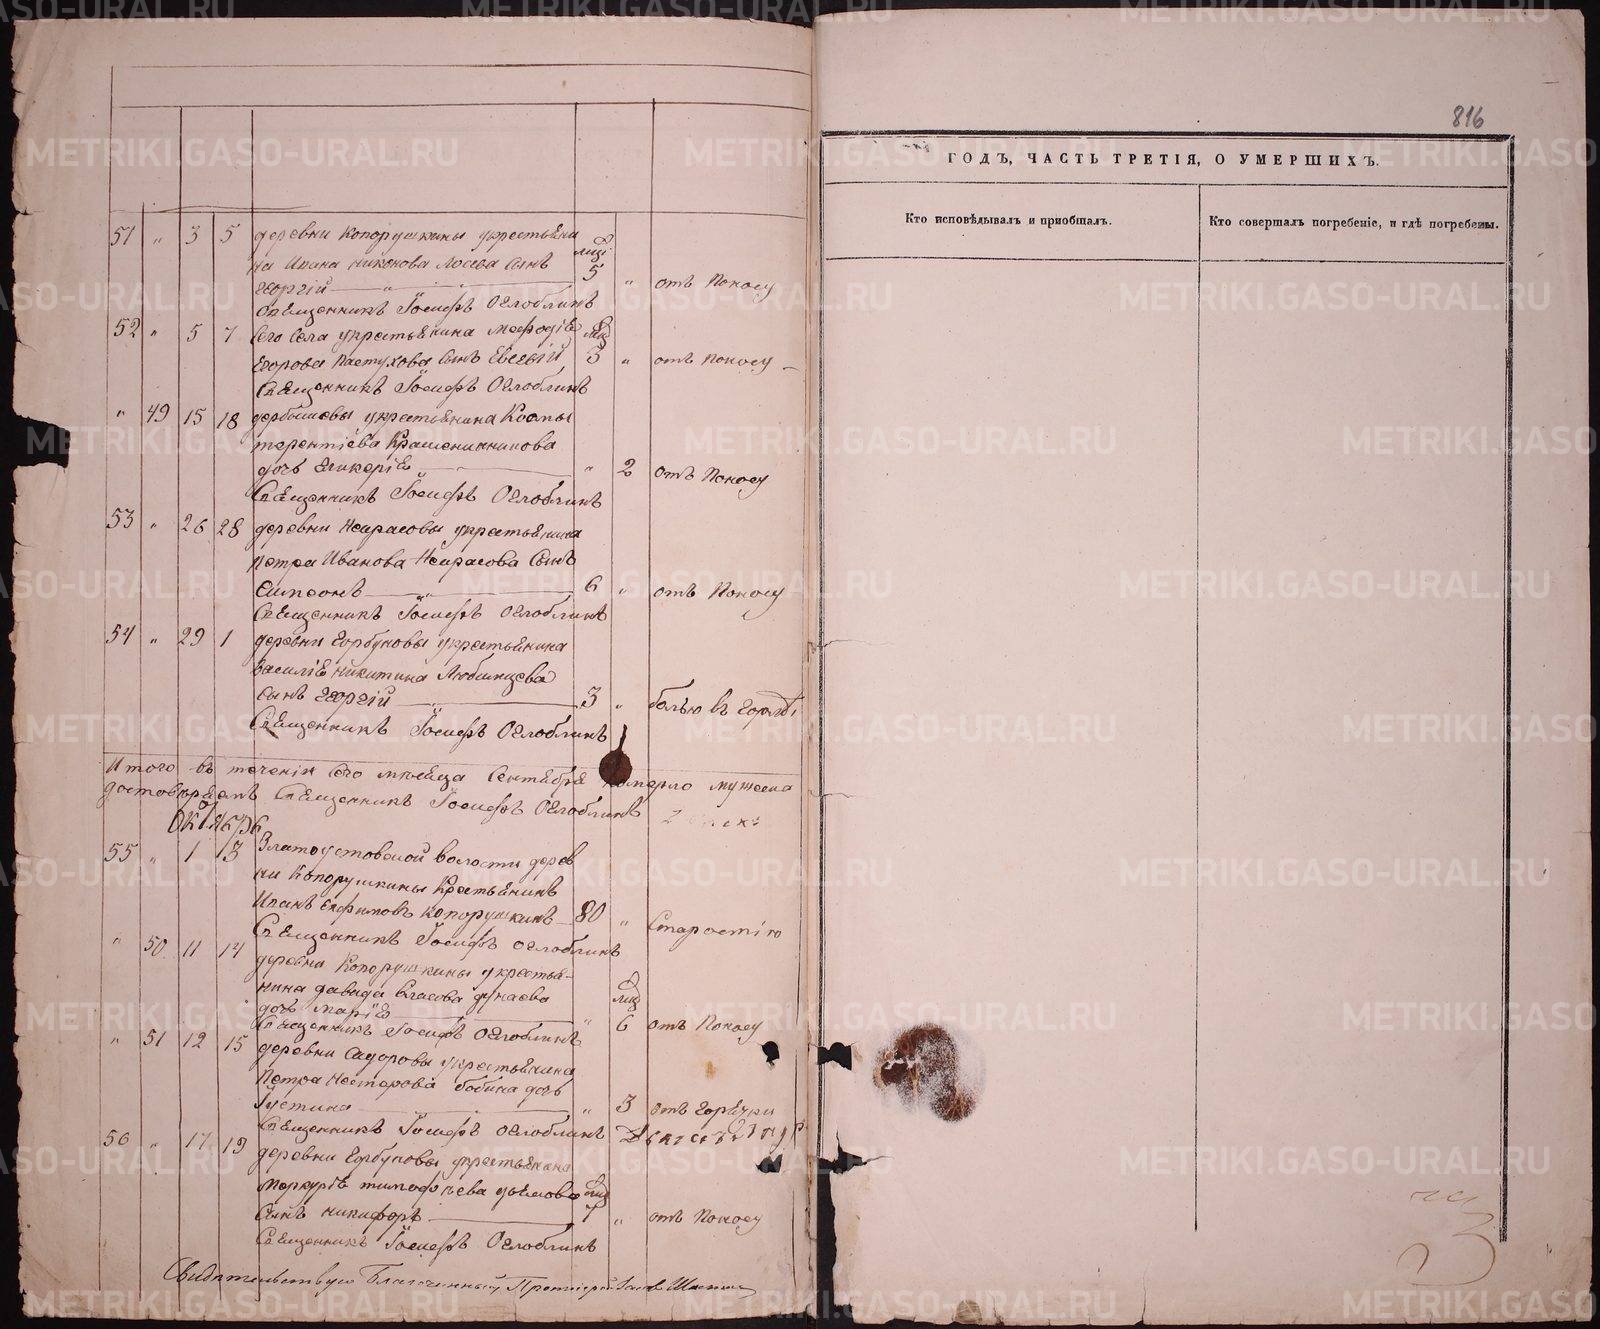 816
ГОДЪ, ЧАСТЬ ТРЕТІЯ, О УМЕРШИХЪ.
Кто исповѣдывалъ и пріобщалъ.
Кто совершалъ погребеніе, и гдѣ погребены.
51 „ 3 5 деревни Копорушкины укрестьяни
на Ивана Никонова Лосева Сынъ
Георгій 5 „ отъ Поносу
Священникъ Іосифъ Оглоблинъ
52 „ 5 7 Сего Села укрестьянина Мефодіе
Егорова Пастухова Сынъ Евсевій 3 „ отъ Поносу
Священникъ Іосифъ Оглоблинъ
„ 49 15 18 укрестьянина Космы
терентіева Крашенинникова
дочь Гликеріе „ 2 отъ Поносу
Священникъ Іосифъ Оглоблинъ
53 „ 26 28 деревни Некрасовы укрестьянина
Петра Иванова Некрасова Сынъ
Симеонъ 6 „ отъ Поносу
Священникъ Іосифъ Оглоблинъ
54 „ 29 1 деревни Горбуновы укрестьянина
Василіе Никитина Любимцева
Сынъ Георгій 3 „ болью въ Горлѣ
Священникъ Іосифъ Оглоблинъ
Итого въ теченіи Сего мѣсяца Сентября померло мужеска
Священникъ Іосифъ Оглоблинъ
Октябрь
55 „ 1 3 Златоустовской волости дерев
ни Копорушкины Крестьянинъ
Иванъ Ефимовъ Копорушкинъ 80 „ Старостію
Священникъ Іосифъ Оглоблинъ
„ 50 11 14 деревни Копорушкины укрестья-
нина давида Власова дунаева
дочь Маріе „ 6 отъ Поносу
Священникъ Іосифъ Оглоблинъ
„ 51 12 15 деревни Сидоровы укрестьянина
Петра Нестерова бобина дочь
Іустина „ 3 отъ Горячки
Священникъ Іосифъ Оглоблинъ
56 „ 17 19 деревни Горбуновы укрестьянина
Меркуріе тимофѣева
Сынъ Никифоръ „ отъ Поносу
Священникъ Іосифъ Оглоблинъ
Свидѣтельствую Благочинный Протоіерей
METRIKI.GASO-URAL.RU